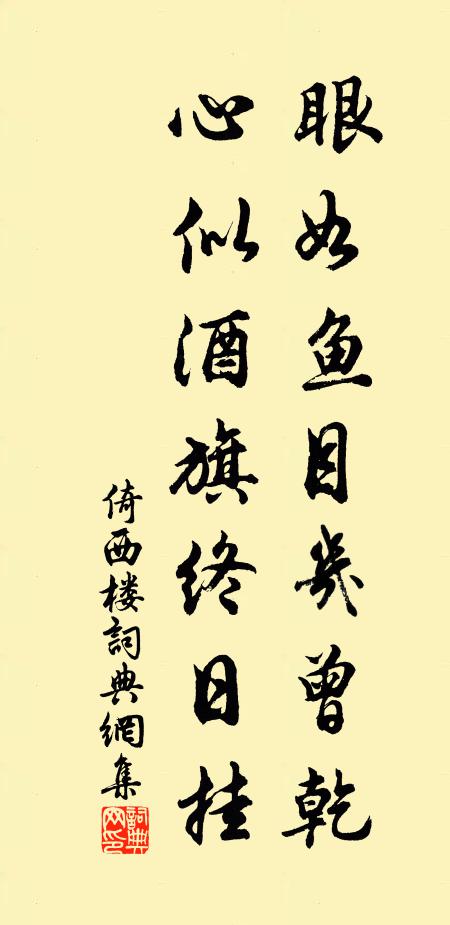 眼如魚目幾曾乾
心似酒旗終日挂
倚西楼詞典網集
詞典
网印